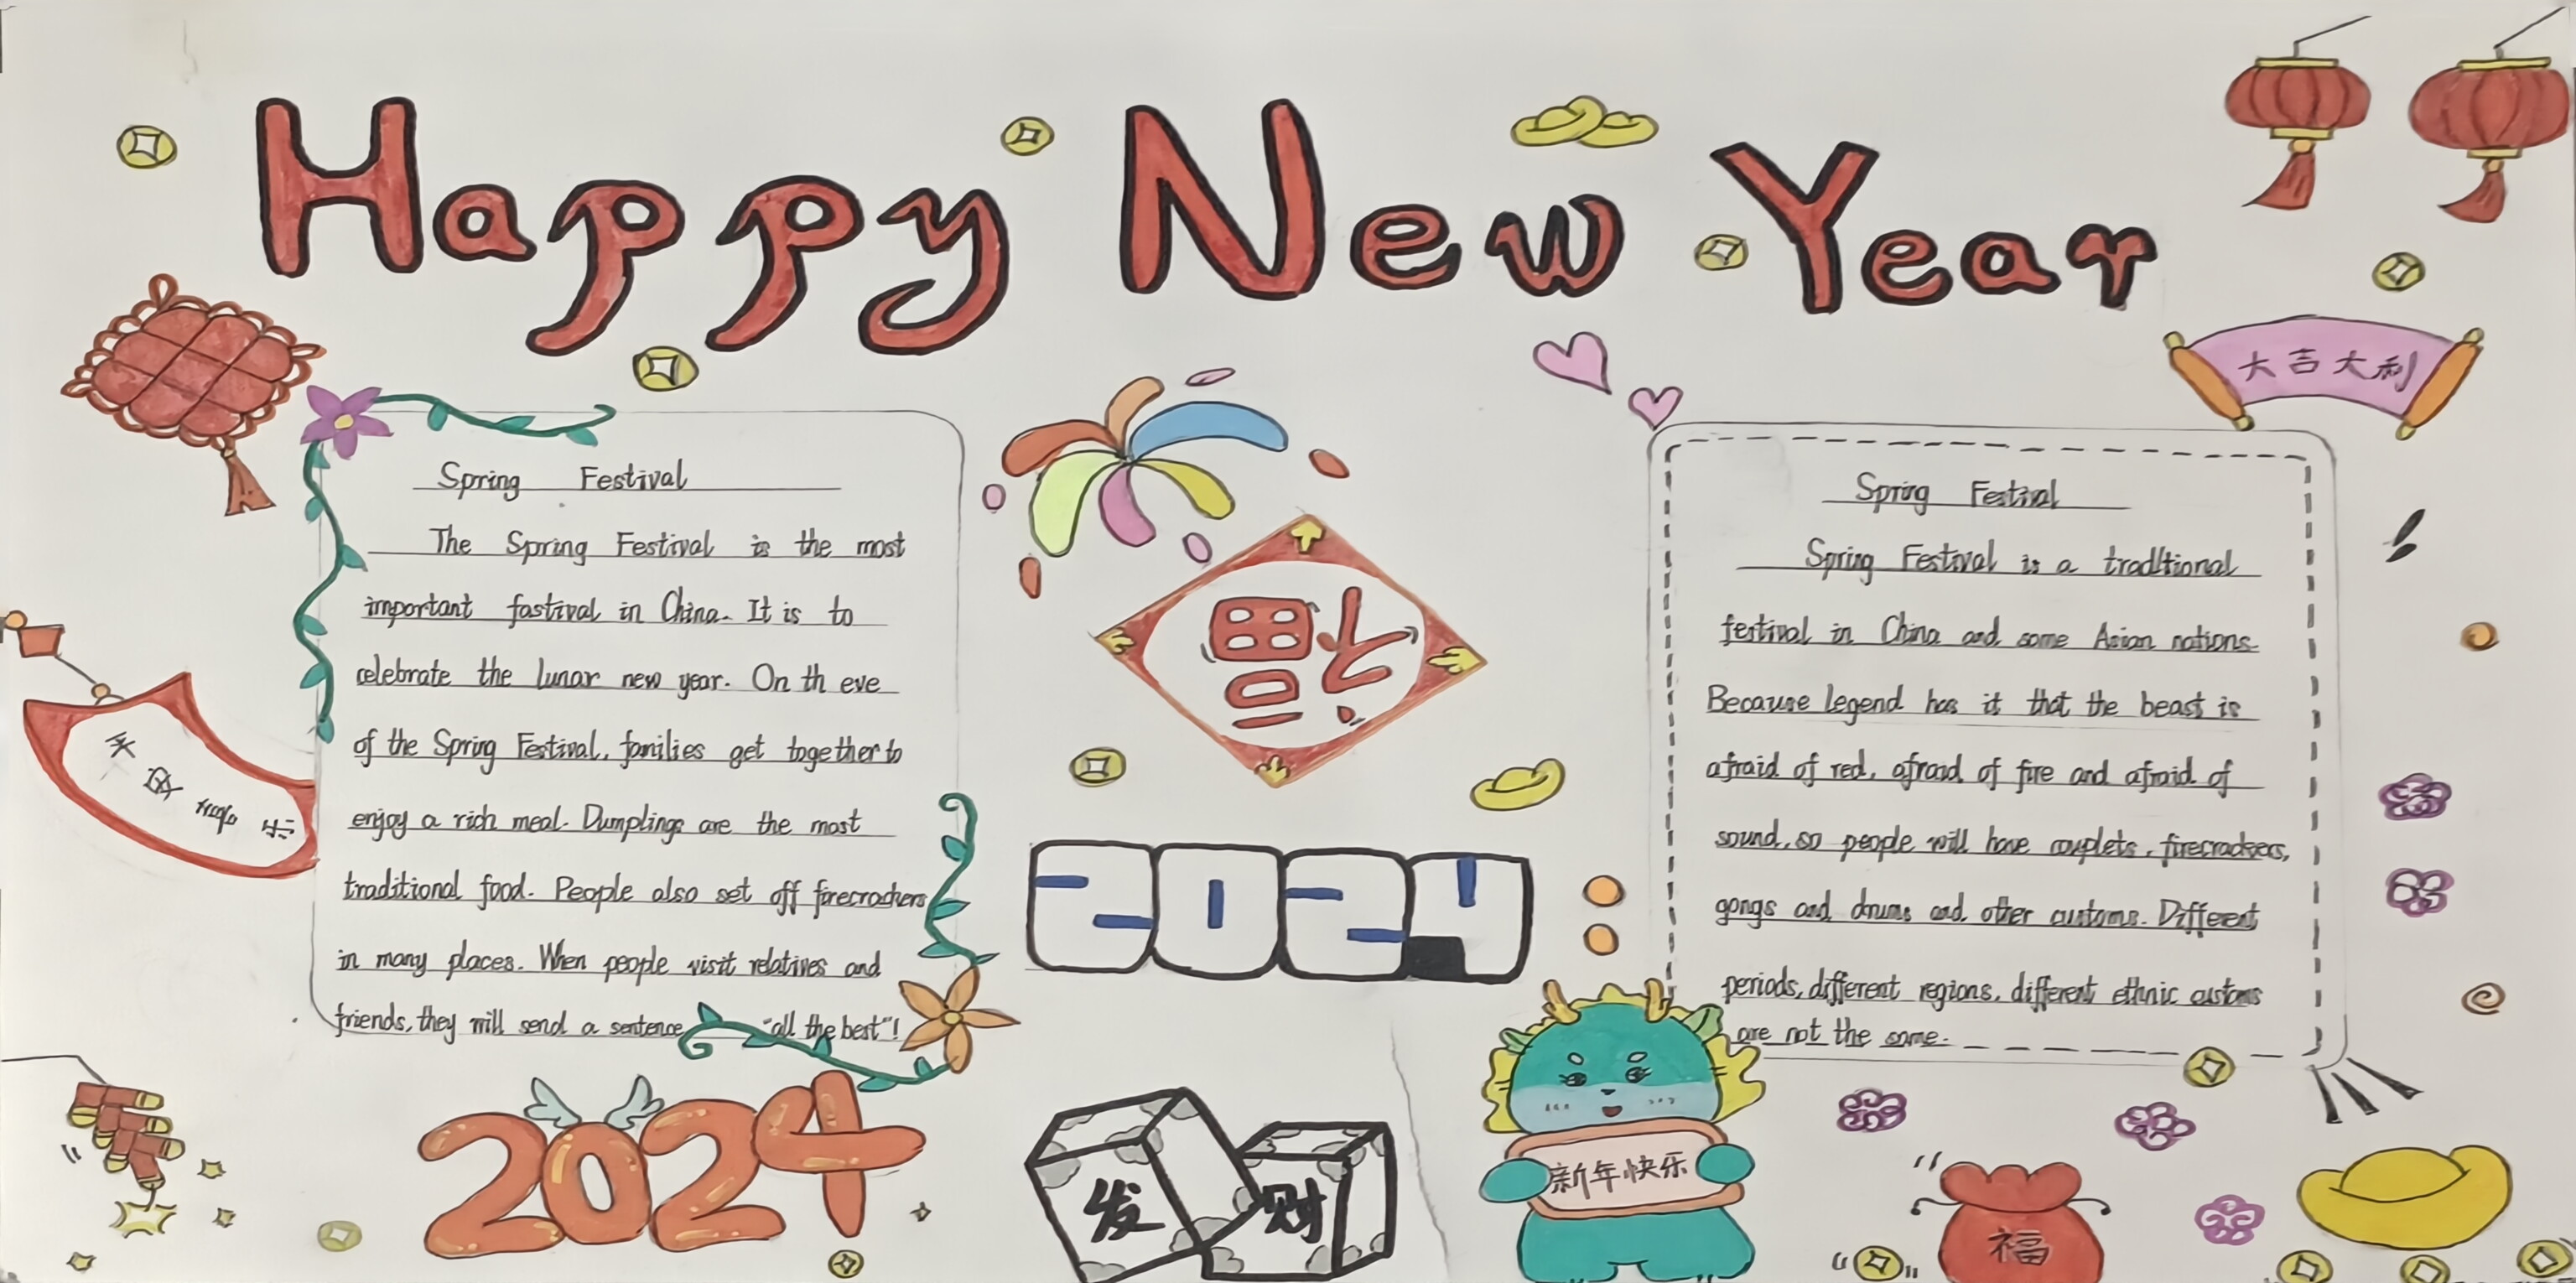 Happy New Year
大吉大利
Spring Festival
The Spring Festival is the most
important fastival in China. It is to
celebrate the lunar new year. On th eve
of the Spring Festival, families get together to
enjoy a rich meal. Dumplings are the most
traditional food. People also set off firecrackers
in many places. When people visit relatives and
friends, they will send a sentence "all the best"!
福
2024
Spring Festival
Spring Festival is a traditional
festival in China and some Asian nations.
Because legend has it that the beast is
afraid of red, afraid of fire and afraid of
sound, so people will have couplets, firecrackers,
gongs and drums and other customs. Different
periods, different regions, different ethnic customs
are not the same.
2024
发财
新年快乐
福